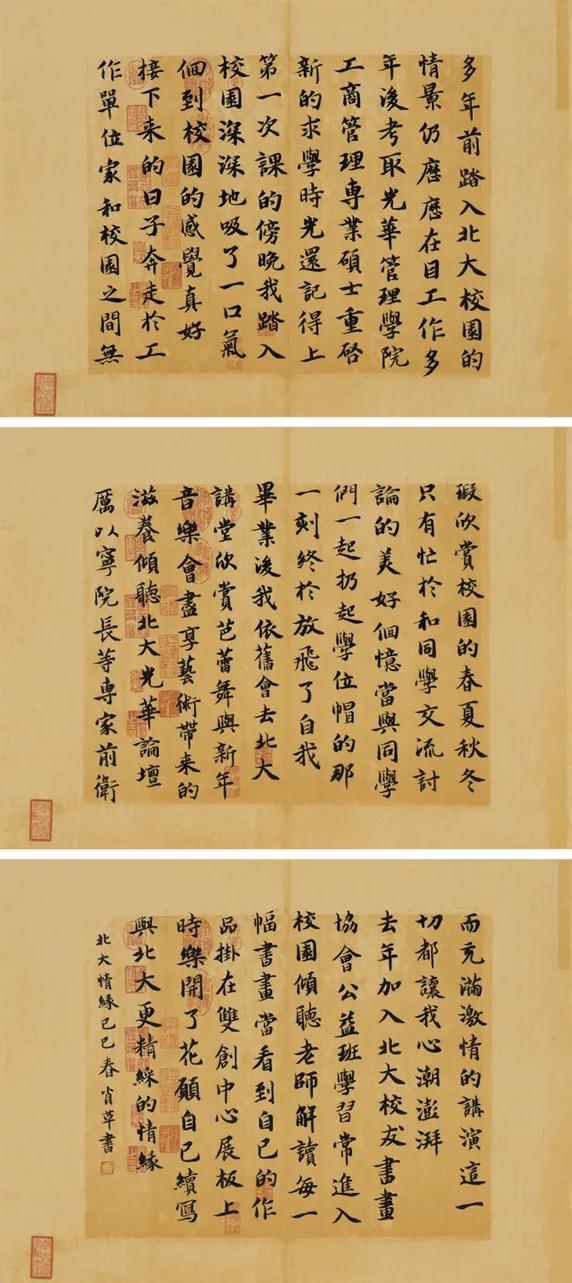 多年前踏入北大校園的
情景仍歷歷在目工作多
年後考取光華管理學院
工商管理專業碩士重啓
新的求學時光還記得上
第一次課的傍晚我踏入
校園深深地吸了一口氣
回到校園的感覺真好
接下来的日子奔走於工
作單位家和校園之間無
暇欣賞校園的春夏秋冬
只有忙於和同學交流討
論的美好回憶當與同學
們一起扔起學位帽的那
一刻終於放飛了自我
畢業後我依舊會去北大
講堂欣賞芭蕾舞與新年
音樂會盡享藝術帶来的
滋養傾聽北大光華論壇
厲以寧院長等專家前衛
而充滿激情的講演這一
切都讓我心潮澎湃
去年加入北大校友書畫
協會公益班學習常進入
校園傾聽老師解讀每一
幅書畫當看到自己的作
品掛在雙創中心展板上
時樂開了花願自己續寫
與北大更精綵的情緣
北大情緣己巳春肖草書